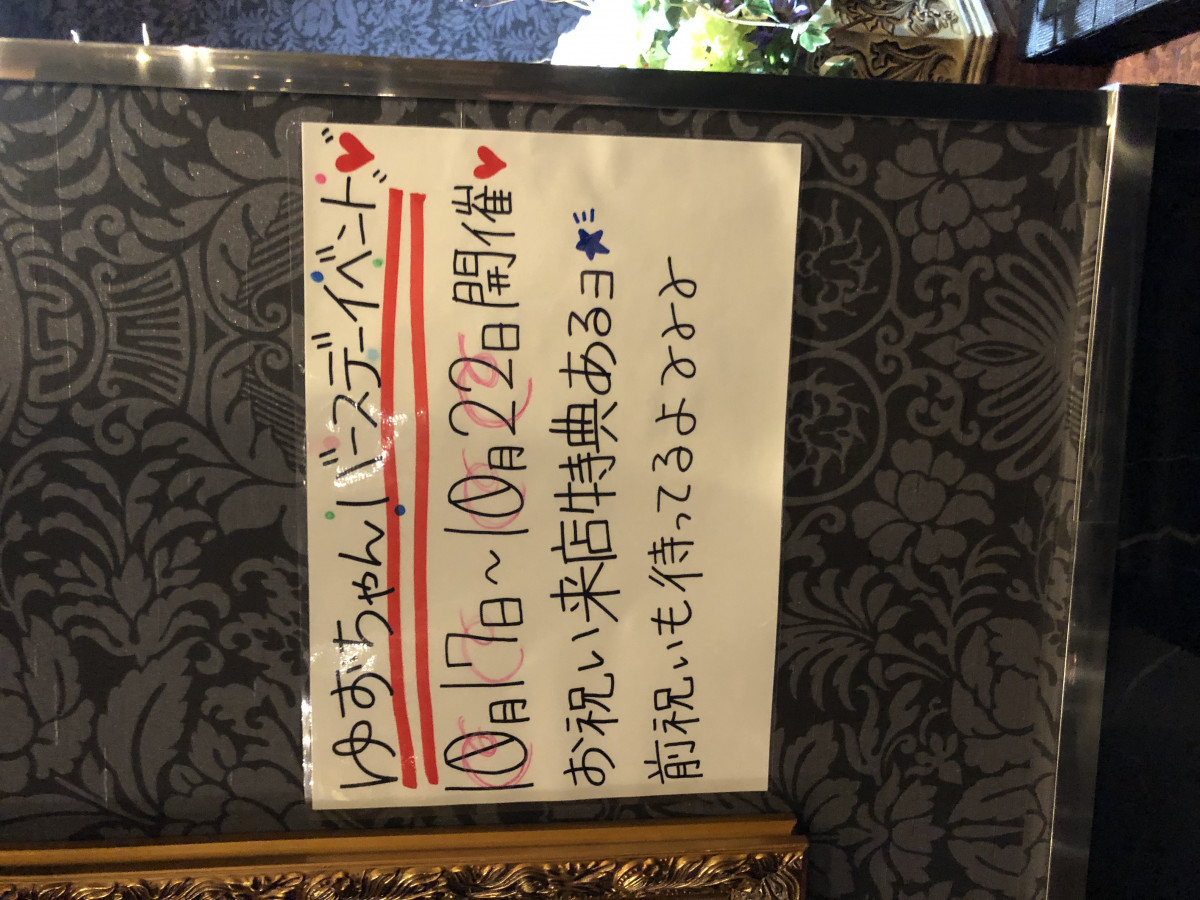 ゆあちゃんバースデーイベント♥
10月17日~10月22日開催♥
お祝い来店特典あるヨ★
前祝いも待ってるよよよよ